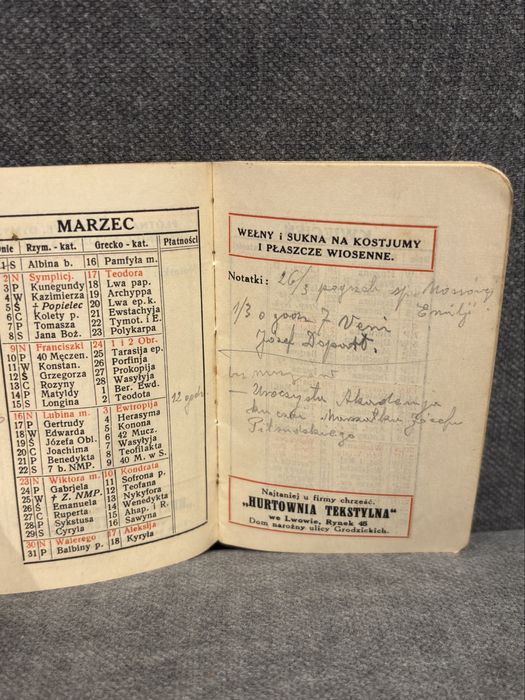 MARZEC
Dnie Rzym. - kat. Grecko - kat. Płatności
1 S Albina b. 16 Pamfyła m.
2 N Symplicj. 17 Teodora
3 P Kunegundy 18 Lwa pap.
4 W Kazimierza 19 Archyppa
5 Ś + Popielec 20 Lwa ep. k.
6 C Kolety p. 21 Ewstachyja
7 P Tomasza 22 Tymot. i E.
8 S Jana Boż. 23 Polykarpa
9 N Franciszki 24 1 i 2 Obr.
10 P 40 Męczen. 25 Tarasija ep.
11 W Konstan. 26 Porfinja
12 Ś Grzegorza 27 Prokopija
13 C Rozyny 28 Wasyłyja
14 P Matyldy 1 Ber. Ewd.
15 S Longina 2 Teodota
12 godz
16 N Lubina m. 3 Ewtropija
17 P Gertrudy 4 Herasyma
18 W Edwarda 5 Konona
19 Ś Józefa Obl. 6 42 Mucz.
20 C Joachima 7 Wasyłyja
21 P Benedykta 8 Teofilakta
22 S 7 b. NMP. 9 40 M. w S.
23 N Wiktora m. 10 Kondrata
24 P Gabrjela 11 Sofrona p.
25 W † Z. NMP. 12 Teofana
26 Ś Emanuela 13 Nykyfora
27 C Ruperta 14 Wenedykta
28 P Sykstusa 15 Ahap. i R.
29 S Cyryla 16 Sawyna
30 N Walerego 17 Aleksija
31 P Balbiny p. 18 Kyryła
WEŁNY i SUKNA NA KOSTJUMY
I PŁASZCZE WIOSENNE.
Notatki: 26/3 pogrzeb śp.
Emilji
1/3 o godz 7
Józef
— Uroczysta Akademja
ku czci Marszałka Józefa
Piłsudskiego
Najtaniej u firmy chrześć.
„HURTOWNIA TEKSTYLNA"
we Lwowie, Rynek 45
Dom narożny ulicy Grodzickich.